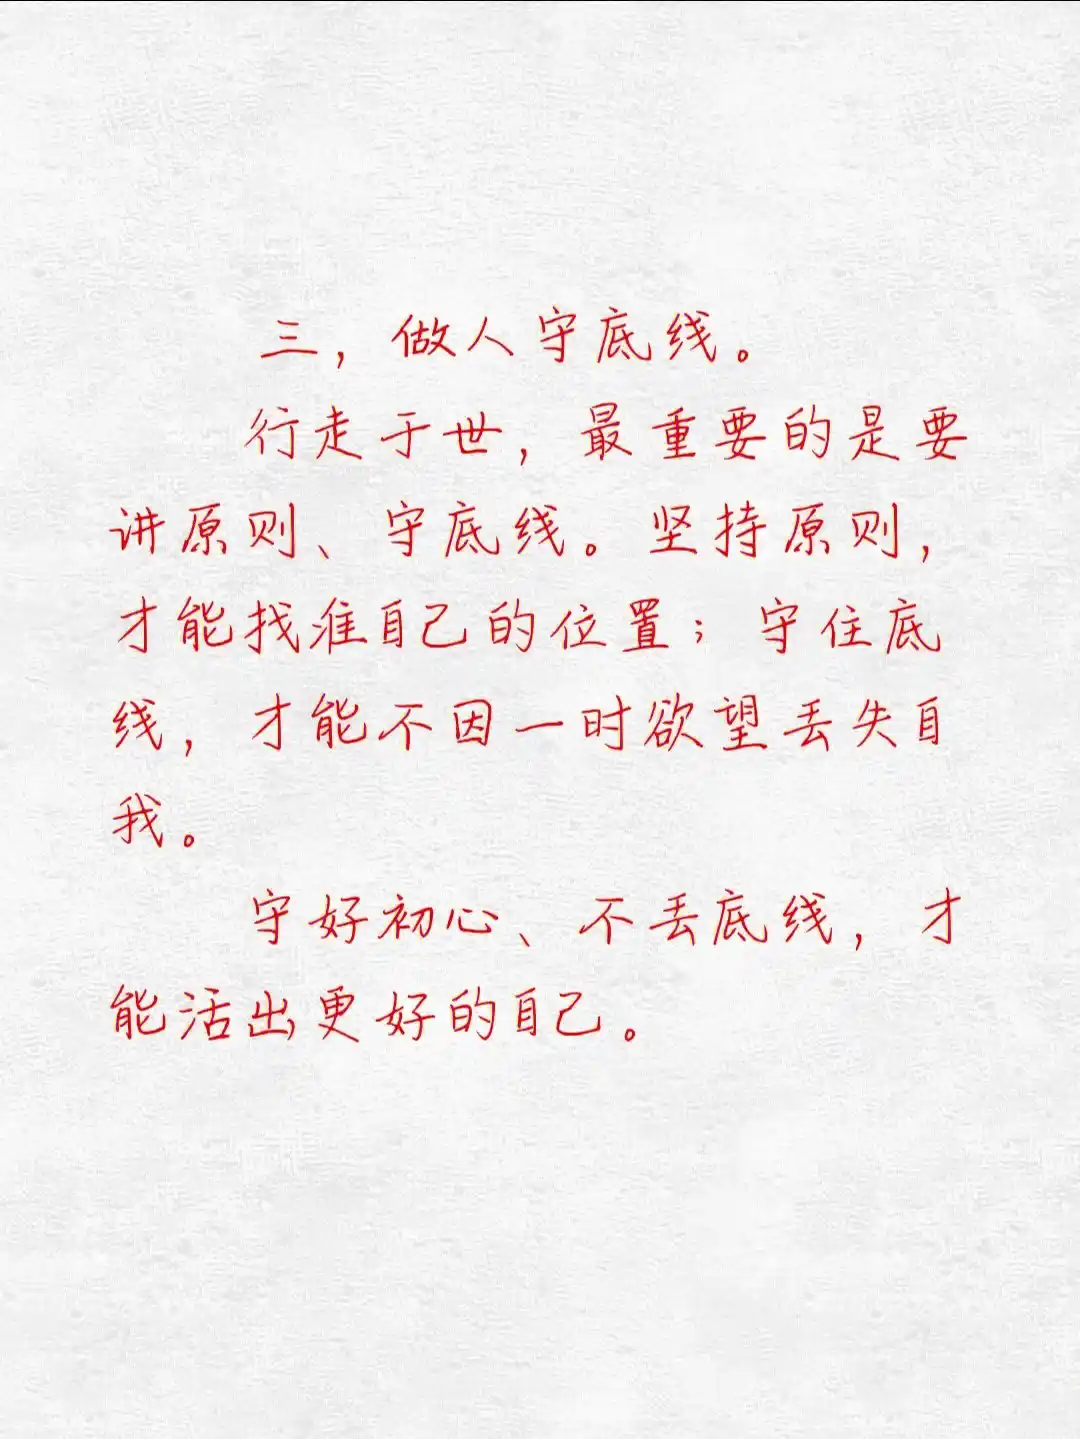 三，做人守底线。
行走于世，最重要的是要
讲原则、守底线。坚持原则，
才能找准自己的位置；守住底
线，才能不因一时欲望丢失自
我。
守好初心、不丢底线，才
能活出更好的自己。